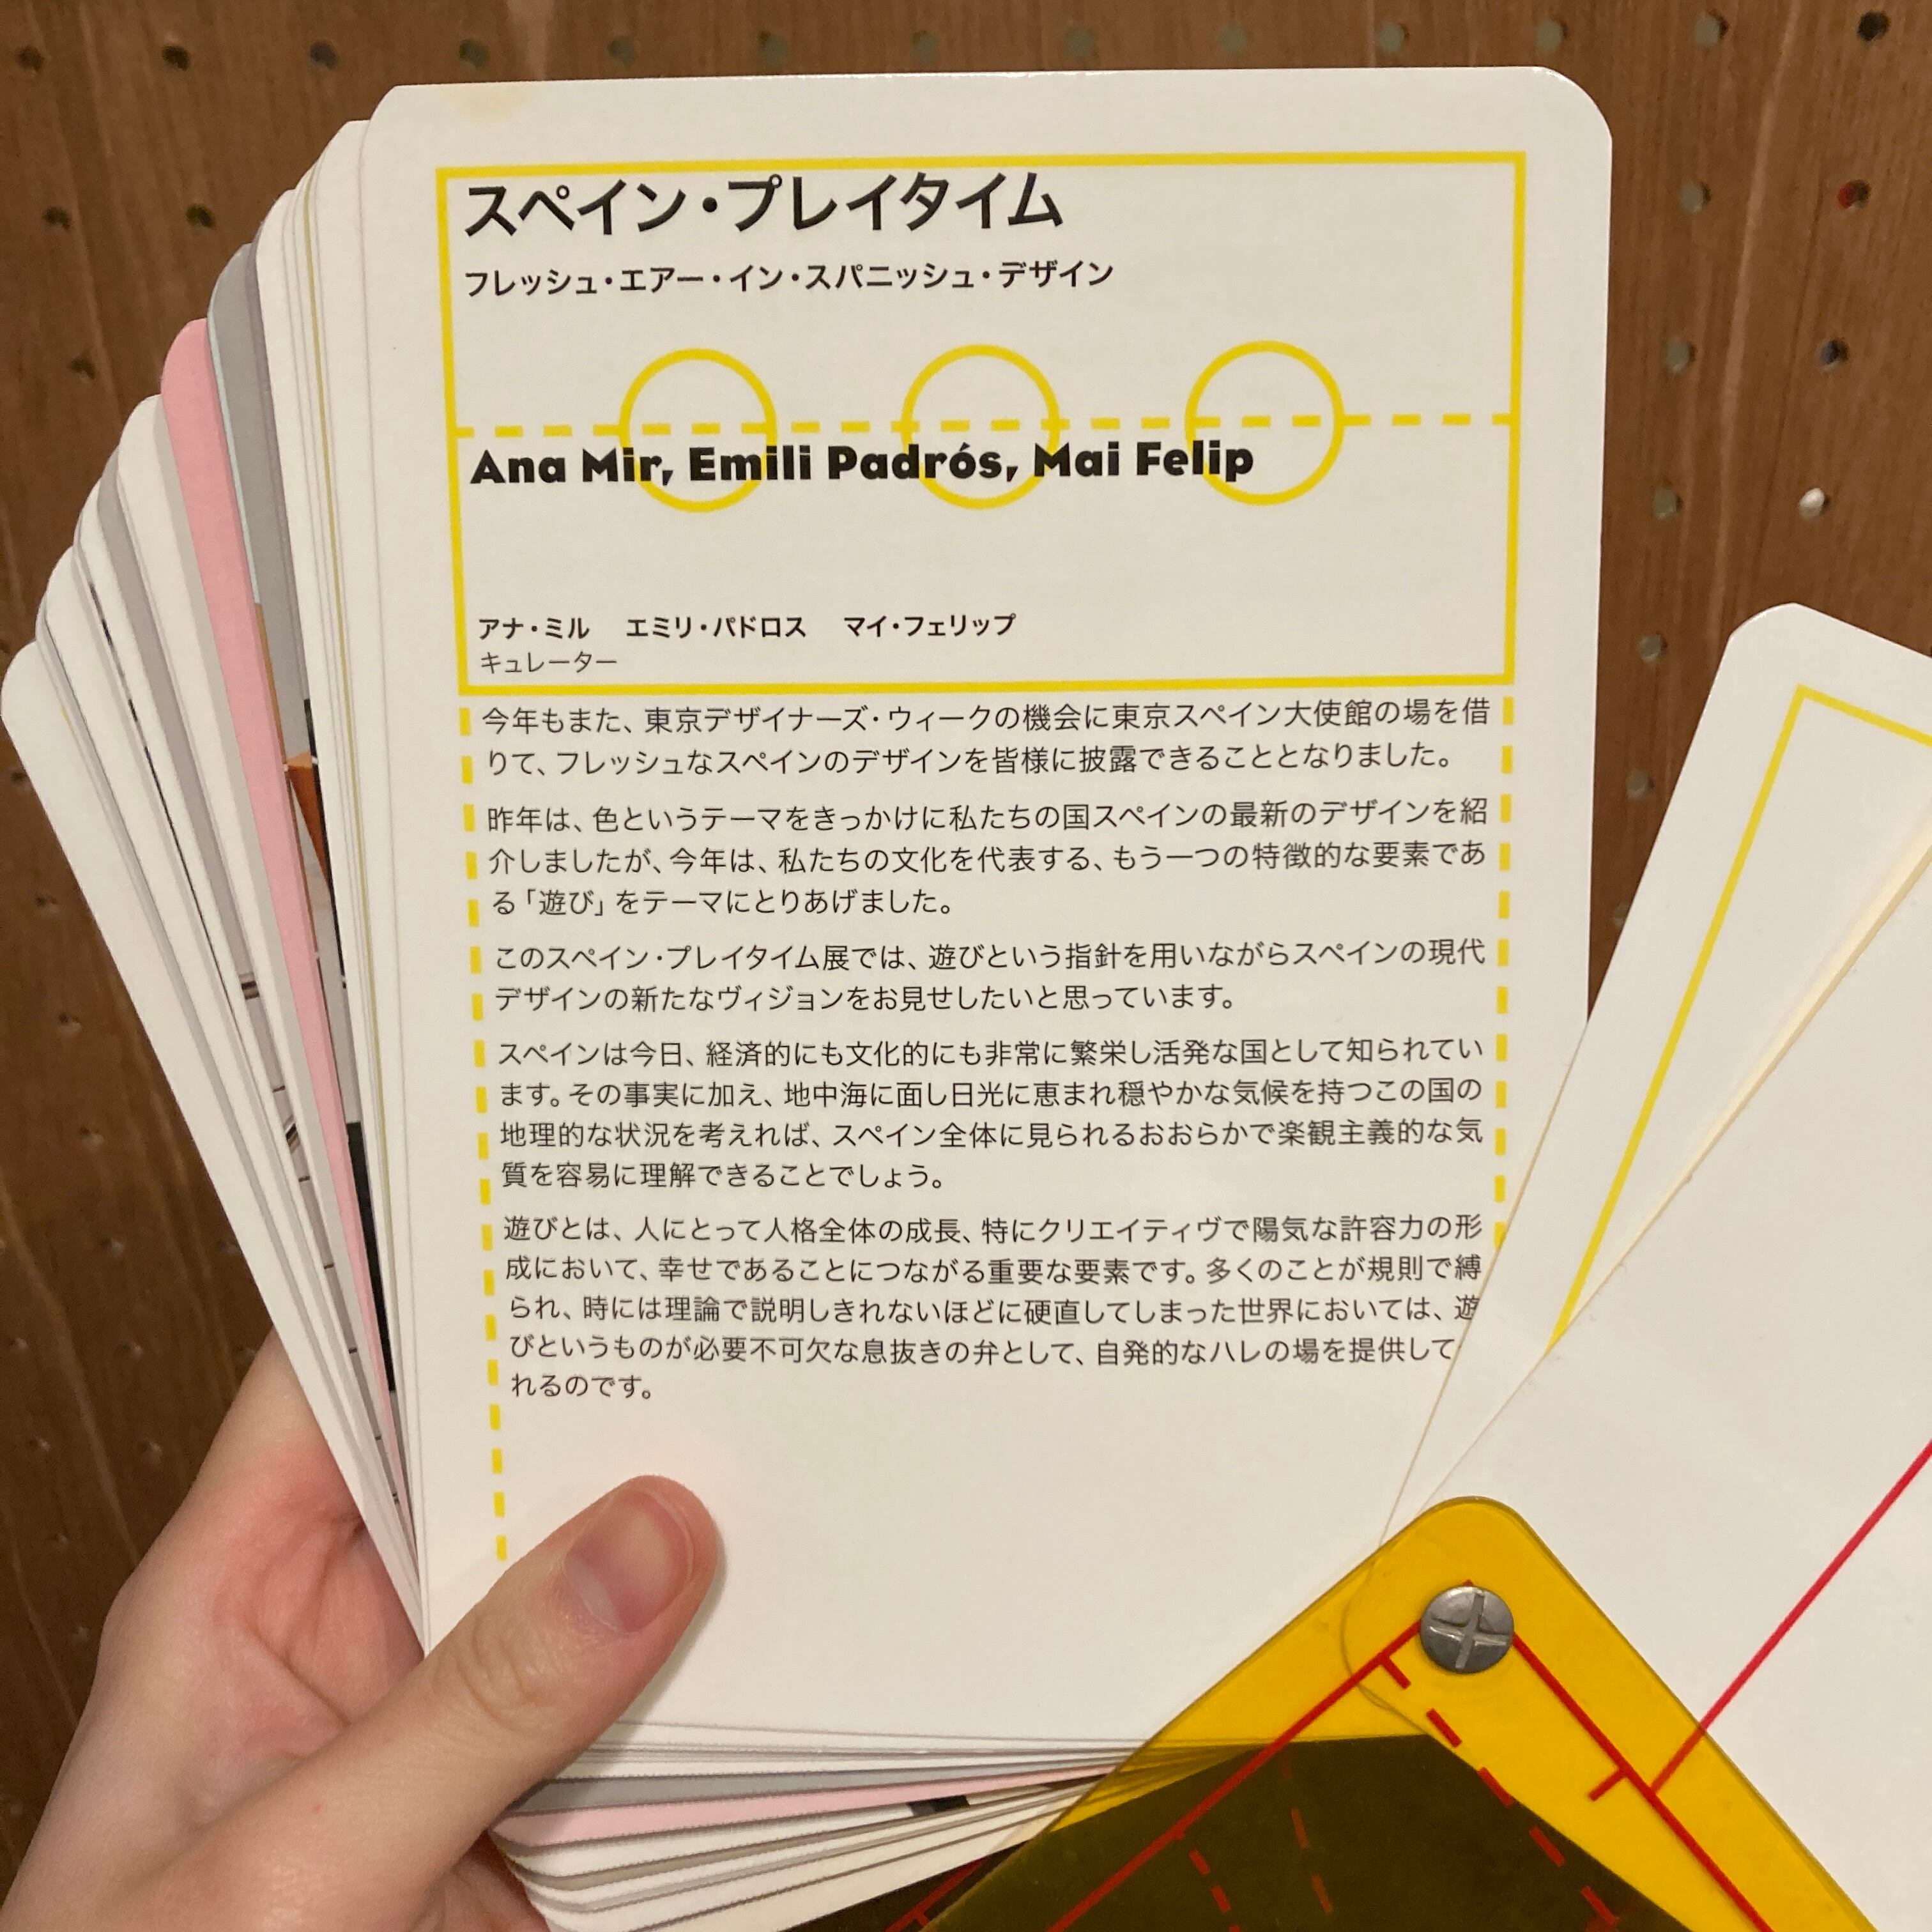 スペイン・プレイタイム
フレッシュ・エアー・イン・スパニッシュ・デザイン
Ana Mir, Emili Padrós, Mai Felip
アナ・ミル エミリ・パドロス マイ・フェリップ
キュレーター
今年もまた、東京デザイナーズ・ウィークの機会に東京スペイン大使館の場を借
りて、フレッシュなスペインのデザインを皆様に披露できることとなりました。
昨年は、色というテーマをきっかけに私たちの国スペインの最新のデザインを紹
介しましたが、今年は、私たちの文化を代表する、もう一つの特徴的な要素であ
る「遊び」をテーマにとりあげました。
このスペイン・プレイタイム展では、遊びという指針を用いながらスペインの現代
デザインの新たなヴィジョンをお見せしたいと思っています。
スペインは今日、経済的にも文化的にも非常に繁栄し活発な国として知られてい
ます。その事実に加え、地中海に面し日光に恵まれ穏やかな気候を持つこの国の
地理的な状況を考えれば、スペイン全体に見られるおおらかで楽観主義的な気
質を容易に理解できることでしょう。
遊びとは、人にとって人格全体の成長、特にクリエイティヴで陽気な許容力の形
成において、幸せであることにつながる重要な要素です。多くのことが規則で縛
られ、時には理論で説明しきれないほどに硬直してしまった世界においては、遊
びというものが必要不可欠な息抜きの弁として、自発的なハレの場を提供して
れるのです。